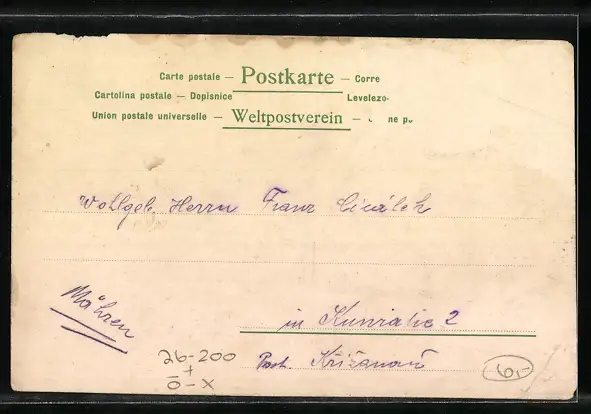 Carte postale — Postkarte — Corre
Cartolina postale — Dopisnice Levelezo-
Union postale universelle — Weltpostverein — ne p
Wohlgeb. Herrn Franz
Mähren
in Kunratic 2
Post. Křižanau
26-200
+
0-X
6,-